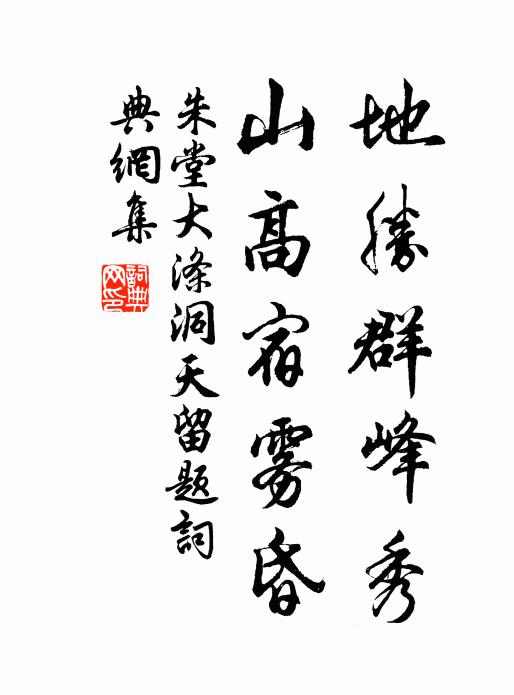 地勝群峰秀
山高宿霧昏
朱堂大滌洞天留題詞
典網集
詞典网印